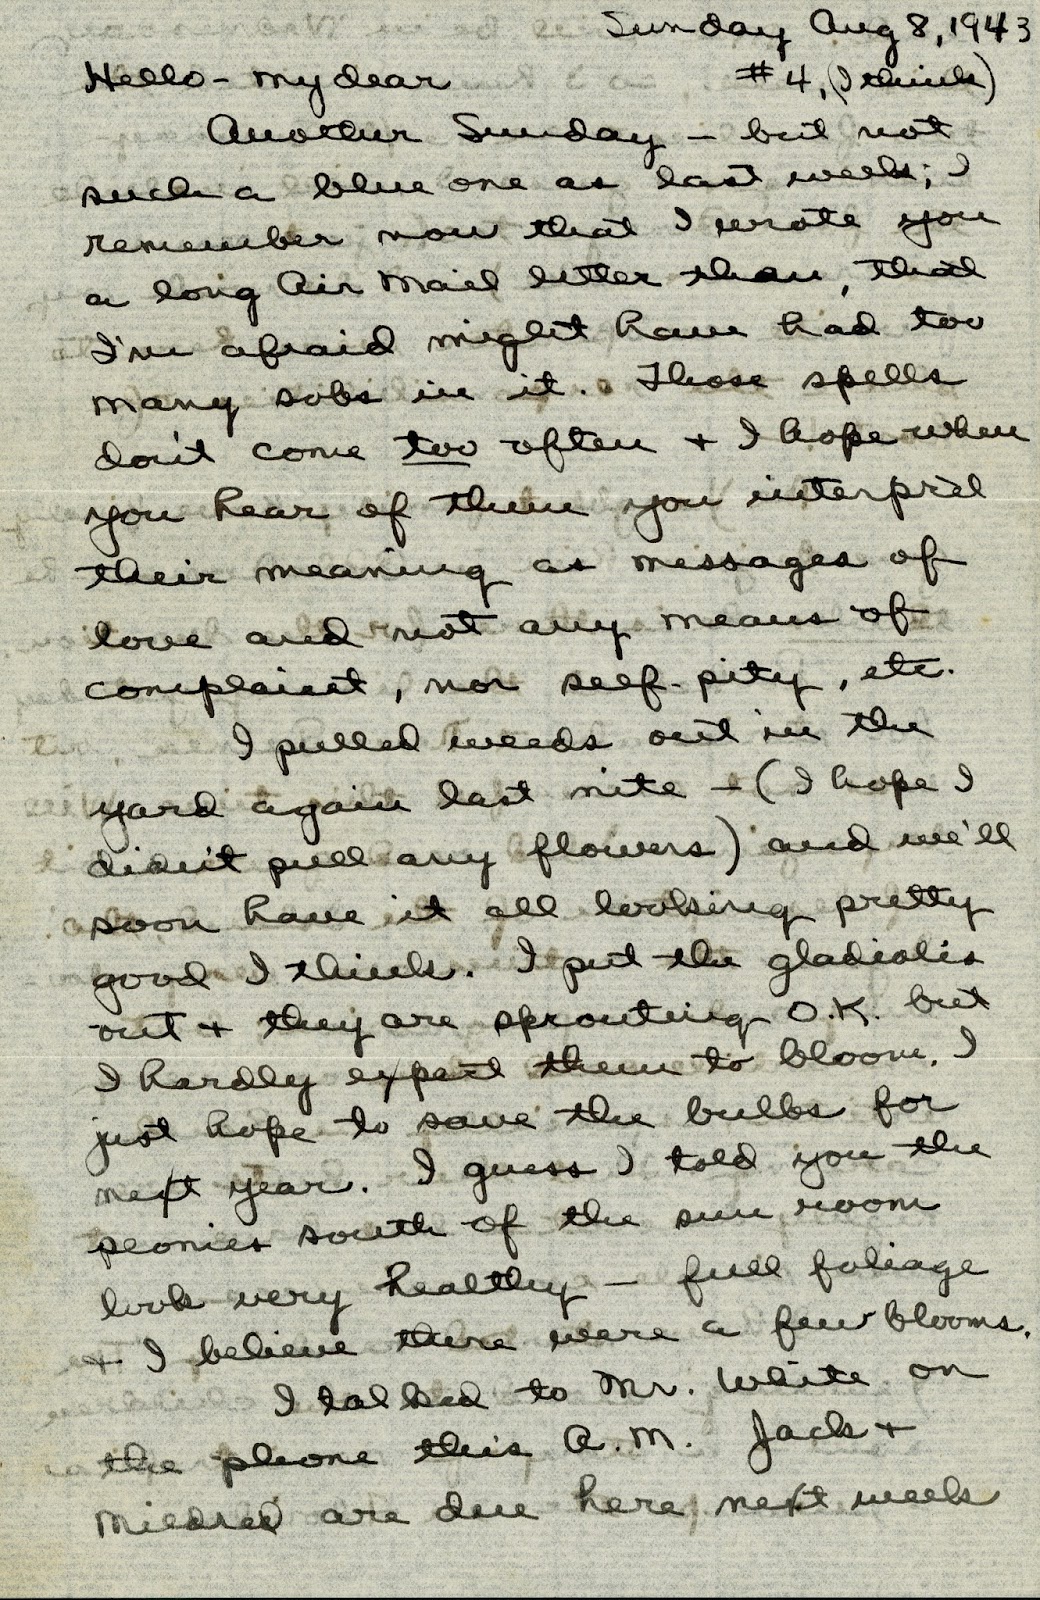 Sunday Aug 8, 1943
Hello - my dear #4, (I think)
Another Sunday - but not
such a blue one as last week; I
remember now that I wrote you
a long Air Mail letter then, that
I'm afraid might have had too
many sobs in it. Those spells
don't come too often + I hope when
you hear of them you interpret
their meaning as messages of
love and not any means of
complaint, nor self-pity, etc.
I pulled weeds out in the
yard again last nite - (I hope I
didn't pull any flowers) and we'll
soon have it all looking pretty
good I think. I put the gladiolis
out + they are sprouting O.K. but
I hardly expect them to bloom. I
just hope to save the bulbs for
next year. I guess I told you the
peonies south of the sun room
look very healthy - full foliage
+ I believe there were a few blooms.
I talked to Mr. White on
the phone this A.M. Jack +
Mildred are due here next week